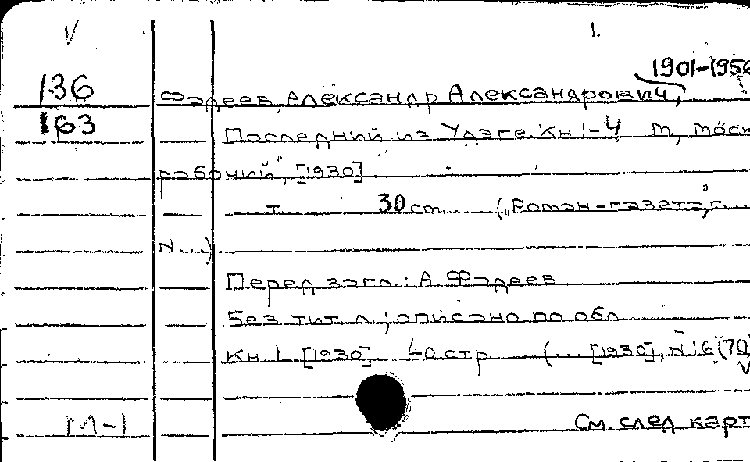 V 1.
1901-1956
136 Фадеев, Александр Александрович,
163 Последний из Удэге. Кн 1-4 М, "Моск
рабочий", [1930]
т. 30 cm. ("Роман-газета",
N...)
Перед загл.: А Фадеев
Без тит л; описано по обл
Кн 1 [1930] стр (... [1930], N 16 (70)
V
М-1 См. след карт